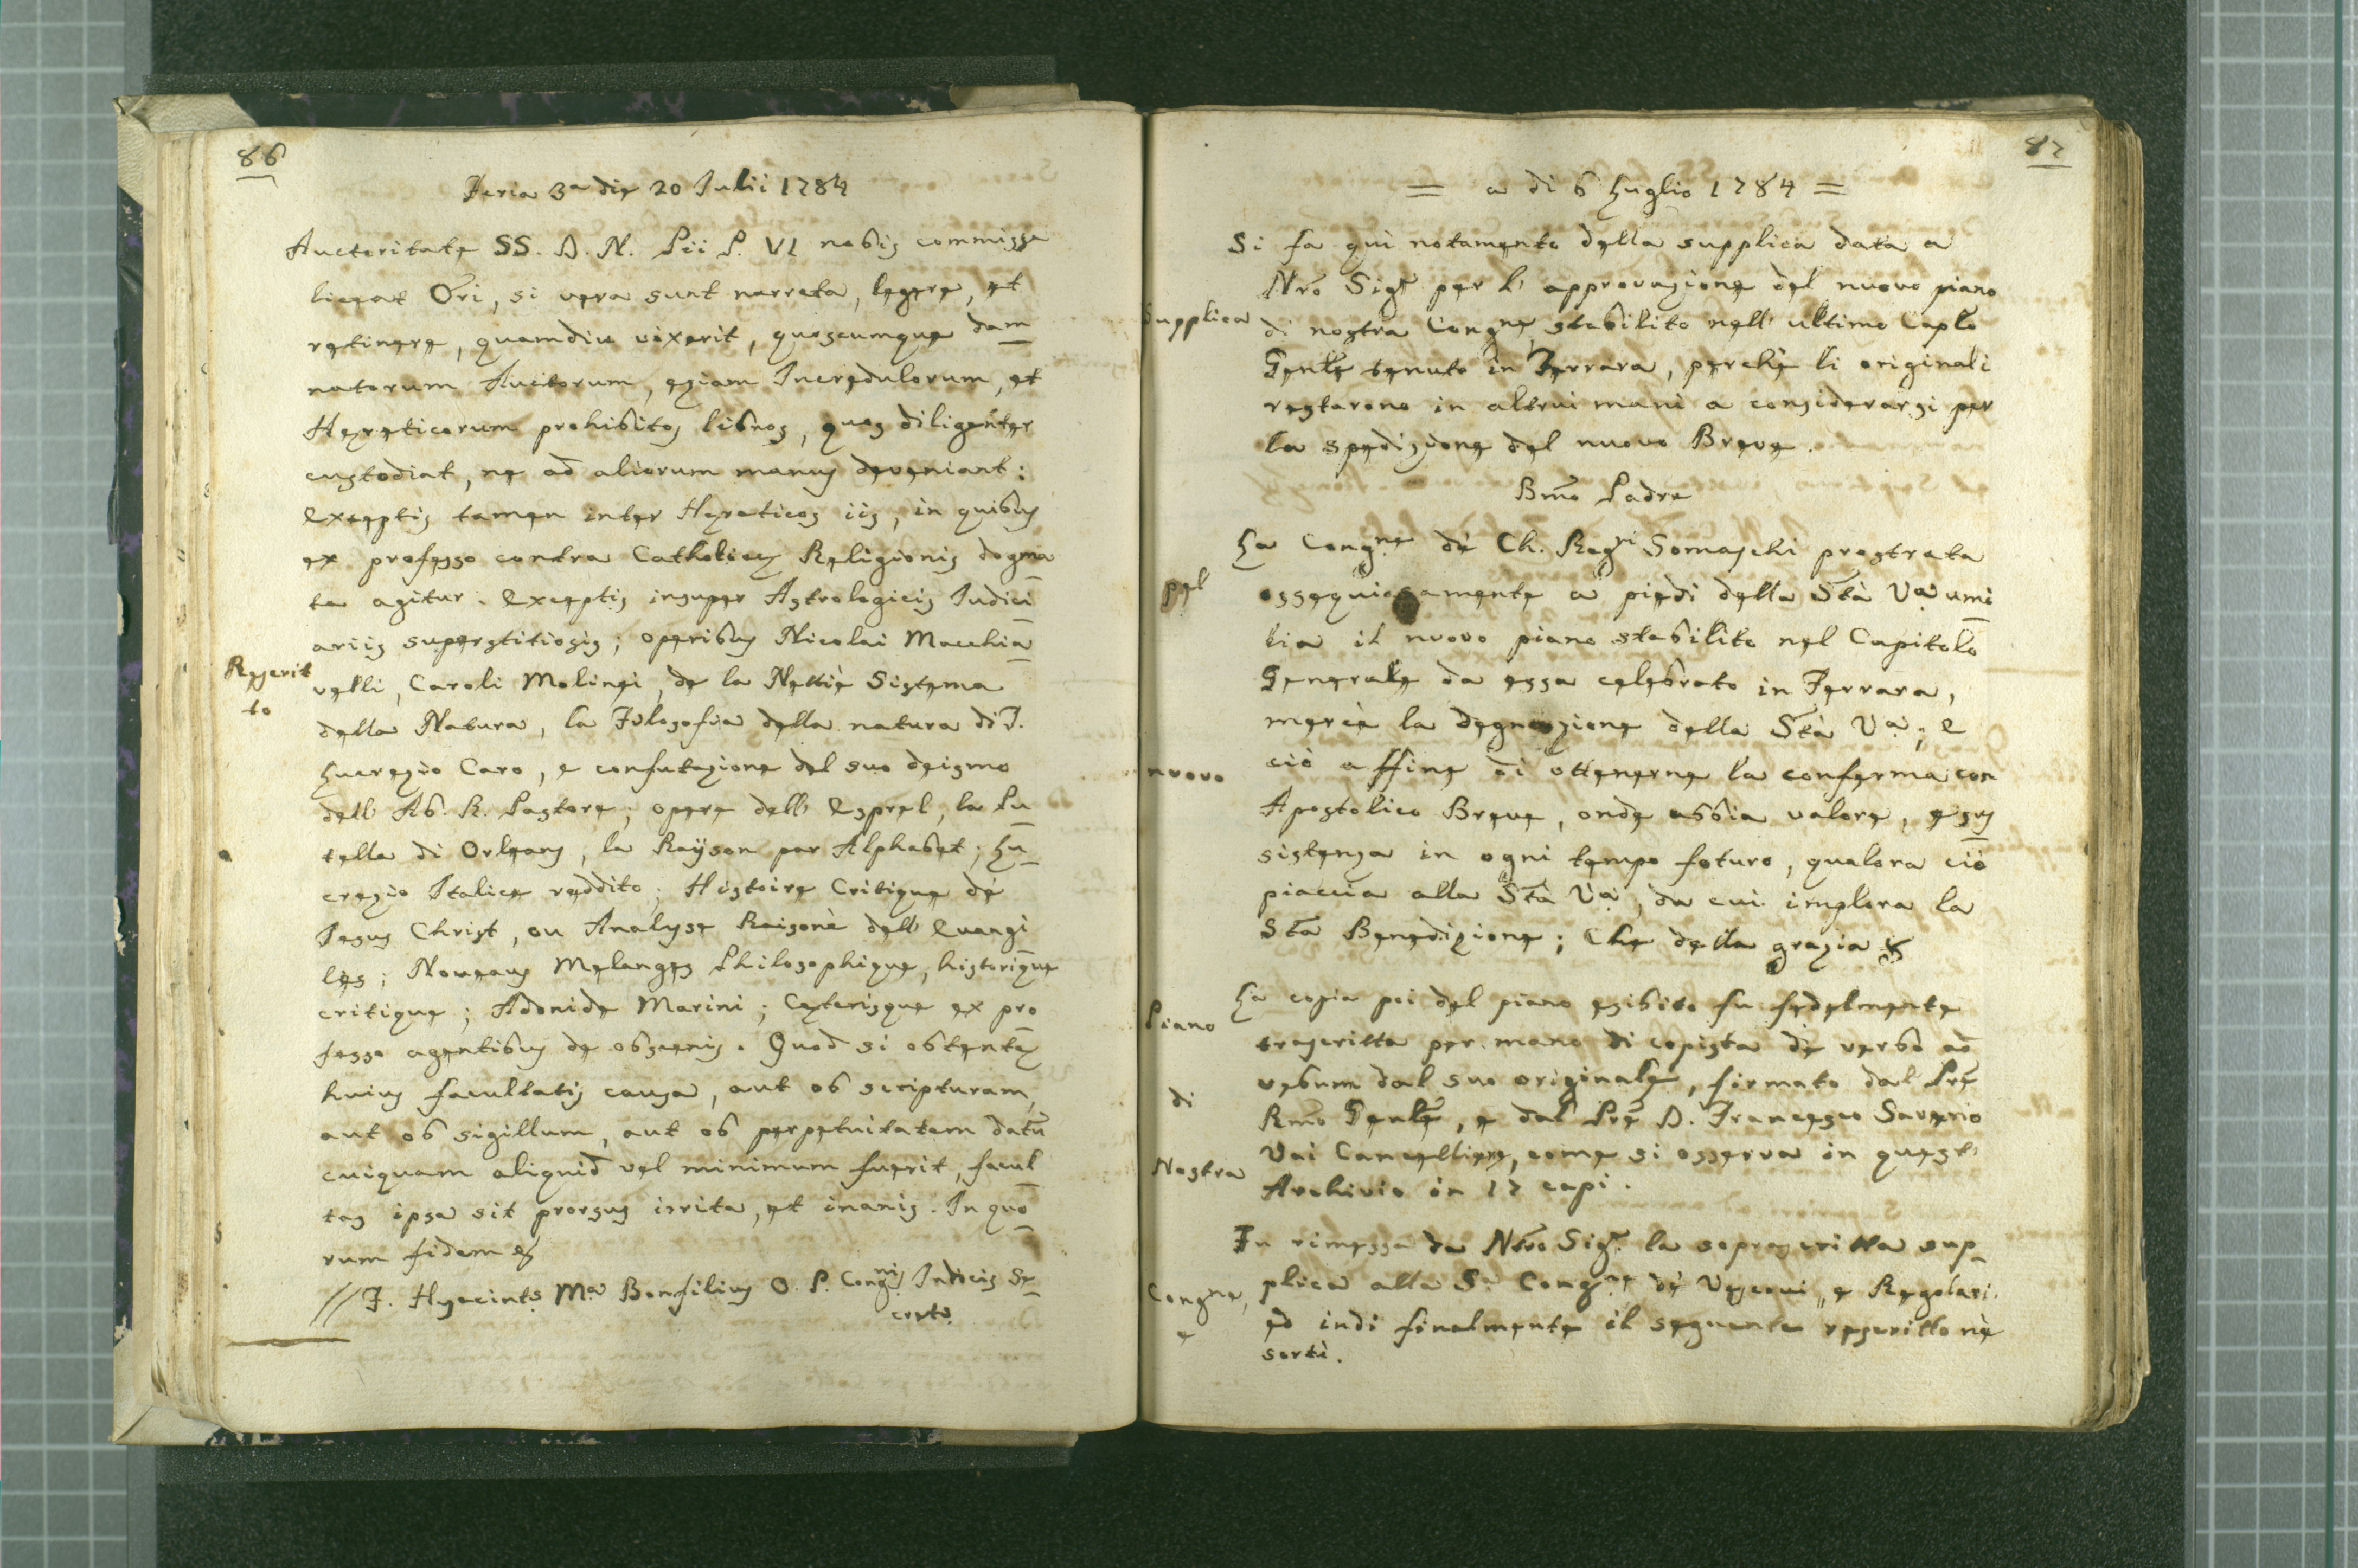 86
Feria 3a die 20 Julii 1784
Auctoritate SS. D. N. Pii P. VI nobis commissa
liceat Ori, si vera sunt narrata, legere, et
retinere, quamdiu vixerit, quoscumque dam
natorum Auctorum, etiam Incredulorum, et
Hereticorum prohibitos libros, quos diligenter
custodiat, ne ad aliorum manus deveniant:
Exceptis tamen inter Hereticos iis, in quibus
ex professo contra Catholice Religionis dogma
ta agitur. Exceptis insuper Astrologicis Iudici
ariis superstitiosis; operibus Nicolai Macchia
Rescrit
to
velli, Caroli Molinei, de la Mettiè Sistema
della Natura, la Filosofia della natura di T.
Lucrezio Caro, e confutazione del suo deismo
dell' Ab. R. Pastore; opere dell' Esprel, la Pu
cella di Orleans, la Rayson par Alphabet; Lu
crezio Italice reddito; Histoire Critique de
Jesus Christ, ou Analyse Raisonè dell Evangi
les; Noveaus Melanges Philosophique, historique
critique; Adonide Marini; Ceterisque ex pro
fesso agentibus de obscenis. Quod si obtente
huius facultatis causa, aut ob scripturam,
aut ob sigillum, aut ob perpetuitatem datu
cuiquam aliquid vel minimum fuerit, facul
tas ipsa sit prorsus irrita, et inanis. In quo
rum fidem &
// F. Hyacints Ma Bonfilius O. P. Congnis Indicis Se
crets
87
= a di 6 Luglio 1784 =
Si fa qui notamento della supplica data a
Nro Sigr per l' approvazione del nuovo piano
supplica
di nostra Congne, stabilito nell' ultimo Caplo
Genle tenuto in Ferrara, perchè li originali
restarono in altrui mani a considerarsi per
la spedizione del nuovo Breve.
Bmo Padre
La Congne de Ch. Regri Somaschi prostrata
pel
ossequiosamente a piedi della Stà Va umi
lia il nuovo piano stabilito nel Capitolo
Generale da essa celebrato in Ferrara,
mercè la degnazione della Stà Va; e
nuovo
ciò affine di ottenerne la conferma con
Apostolico Breve, onde abbia valore, e sus
sistenza in ogni tempo foturo, qualora ciò
piaccia alla Stà Va, da cui implora la
Sta Benedizione; Che della grazia &
La copia poi del piano esibito fu fedelmente
Piano
trascritta per mano di copista de verbo ad
di
vebum dal suo originale, firmato dal Pre
Rmo Genle, e dal Pre D. Francesco Saverio
Vai Cancelliere, come si osserva in quest'
Nostra
Archivio in 17 capi.
Fu rimessa da Nro Sigr la soprascritta sup
Congne,
plica alla Sa Congne de Vescovi, e Regolari.
e
ed indi finalmente il seguente rescritto nè
sortì.